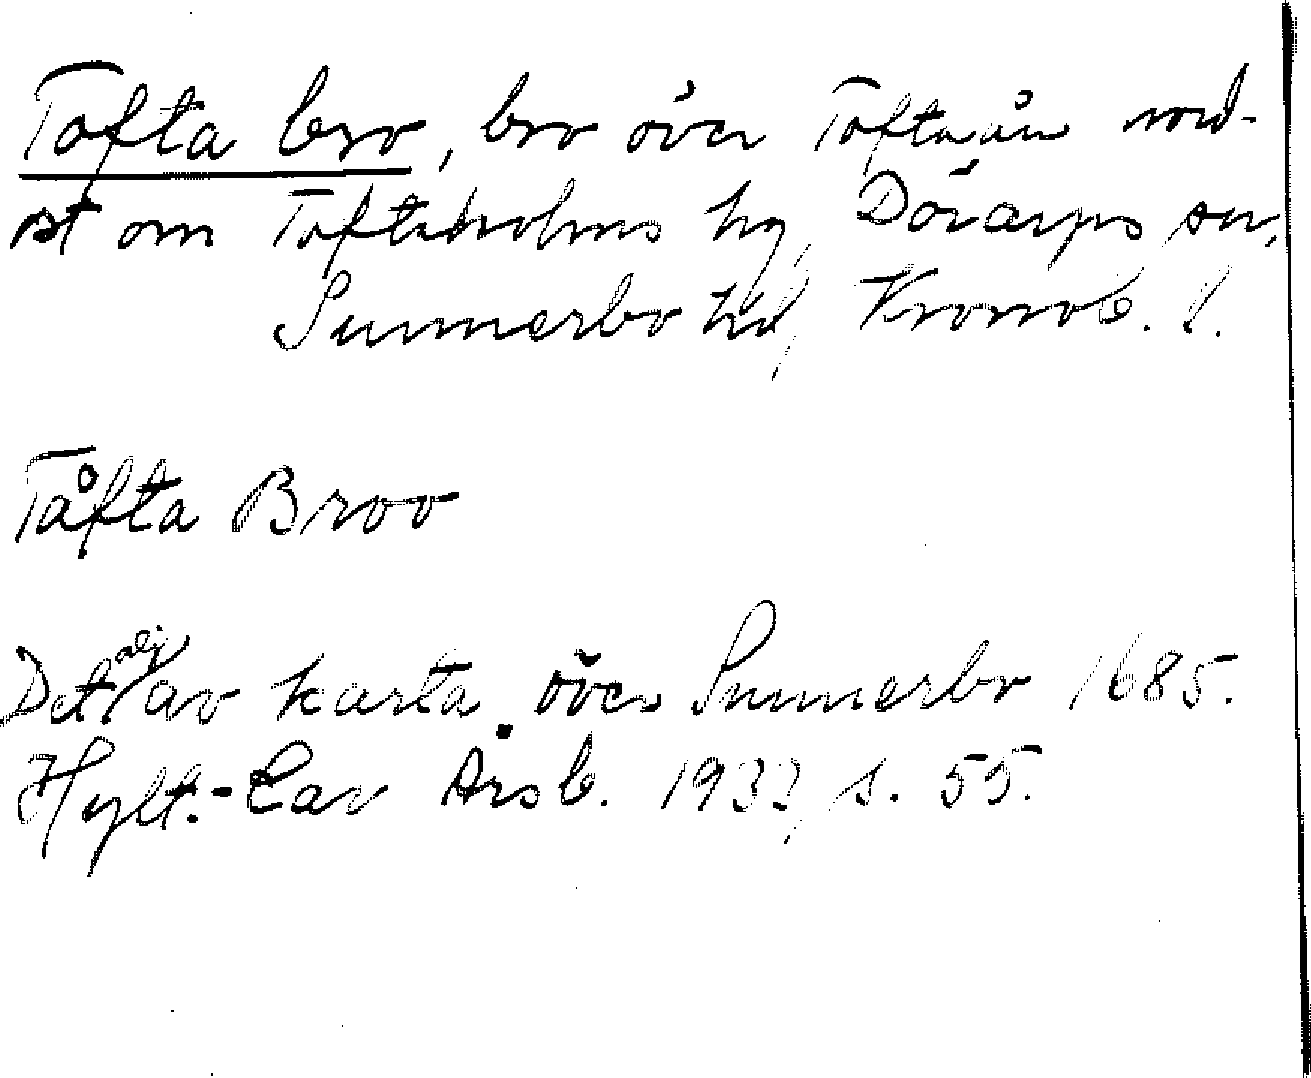 Tofta bro, bro över Toftaån nord-
ost om Toftaholms hg, Dörarps sn,
Sunnerbo hd, Kronob. l.
Tåfta Broo
Detalj av karta över Sunnerbo 1685.
Hylt.-Cav Årsb. 1933, s. 55.